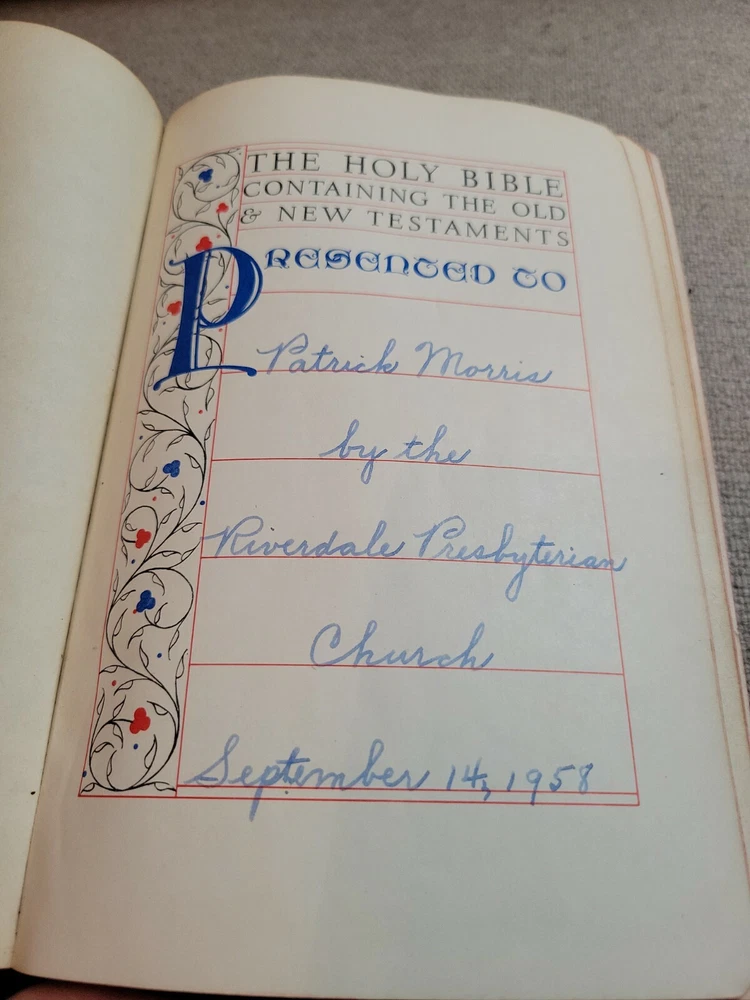 THE HOLY BIBLE
CONTAINING THE OLD
& NEW TESTAMENTS
PRESENTED TO
Patrick Morris
by the
Riverdale Presbyterian
Church
September 14, 1958